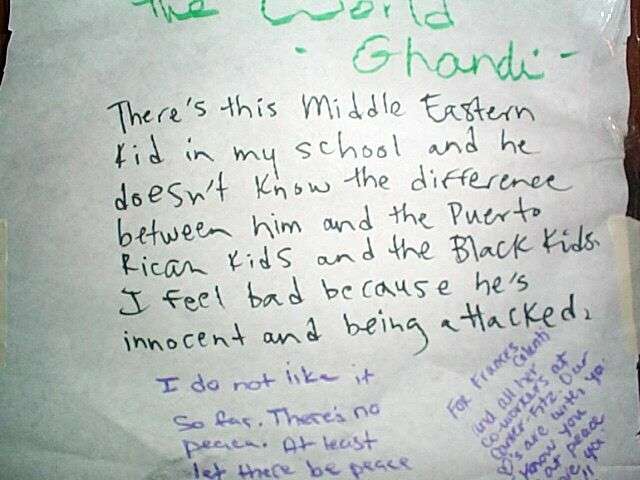 The World
- Ghandi -
There's this Middle Eastern
Kid in my school and he
doesn't know the difference
between him and the Puerto
Rican Kids and the Black Kids.
I feel bad because he's
innocent and being attacked.
I do not like it
so far. There's no
peace. At least
let there be peace
For Frances
and all her
co-workers at
Cantor-Fitz. Our
are with you
know you
at peace
you